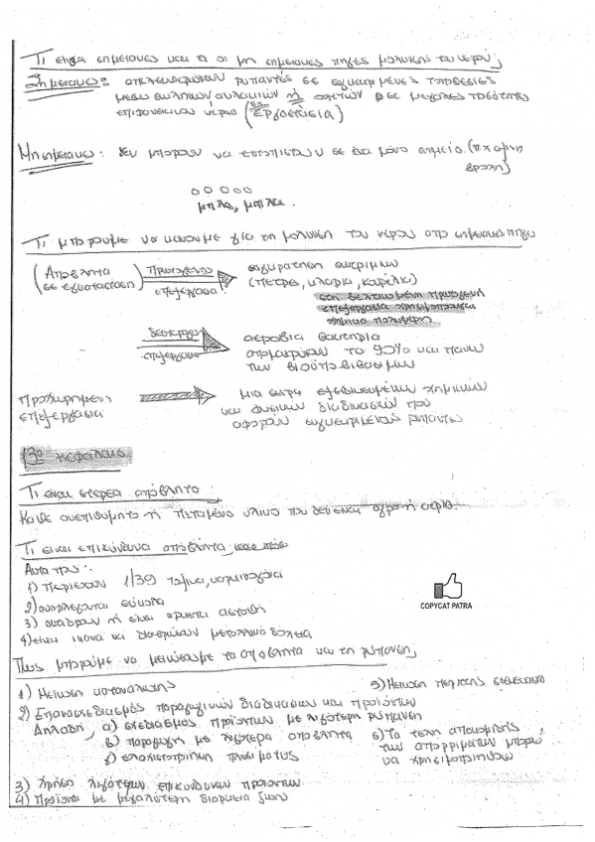 Τι είναι σημειακές και τι οι μη σημειακές πηγές μόλυνσης του νερού;
Σημειακές: απελευθερώνουν ρυπαντές σε συγκεκριμένες τοποθεσίες
μέσω σωλήνων, αυλακιών ή οχετών σε μεγάλες ποσότητες
επιφανειακού νερού (πχ εργοστάσια)
Μη σημειακές: δεν μπορούν να εντοπιστούν σε ένα μόνο σημείο. (πχ όξινη
βροχή)
μπλα, μπλα.
Τι μπορούμε να κάνουμε για τη μόλυνση του νερού από σημειακές πηγές
(Απόβλητα πρωτογενής συγκράτηση
σε εργοστάσια) επεξεργασία (πέτρες, κλαριά, χαρτιά)
στη βελτιωμένη πρωτογενή
επεξεργασία χρησιμοποιούνται
χημικά πολυμερή
δευτερογ. αερόβια βακτήρια
επεξεργασία απομακρύνουν το 90% και πάνω
των
προχωρημένη μια σειρά εξειδικευμένων χημικών
επεξεργασία και φυσικών διαδικασιών που
αφορούν συγκεκριμένους ρύπους
13ο κεφάλαιο
Τι είναι στερεά απόβλητα
Κάθε ανεπιθύμητο ή πεταμένο υλικό που δεν είναι υγρό ή αέριο.
Τι είναι επικίνδυνα απόβλητα
Αυτά που:
1) περιέχουν 1/39 τοξικά, καρκινογόνα
2) αναφλέγονται εύκολα
3) αντιδρούν ή είναι αρκετά ασταθή
4) είναι ικανά να διαβρώσουν μεταλλικά δοχεία
COPYCAT PATRA
Πώς μπορούμε να μειώσουμε τα απόβλητα και τη ρύπανση;
1) Μείωση κατανάλωσης 5) Μείωση περιττής συσκευασίας
2) Επανασχεδιασμός παραγωγικών διαδικασιών και προϊόντων
Δηλαδή, α) σχεδιασμός προϊόντων με λιγότερη ρύπανση
β) παραγωγή με λιγότερα απόβλητα 6) Τα τέλη αποκομιδής
γ) ελαχιστοποίηση των απορριμάτων μπορεί
να χρησιμοποιηθούν
3) Χρήση λιγότερων επικίνδυνων προϊόντων
4) Προϊόντα με μεγαλύτερη διάρκεια ζωής